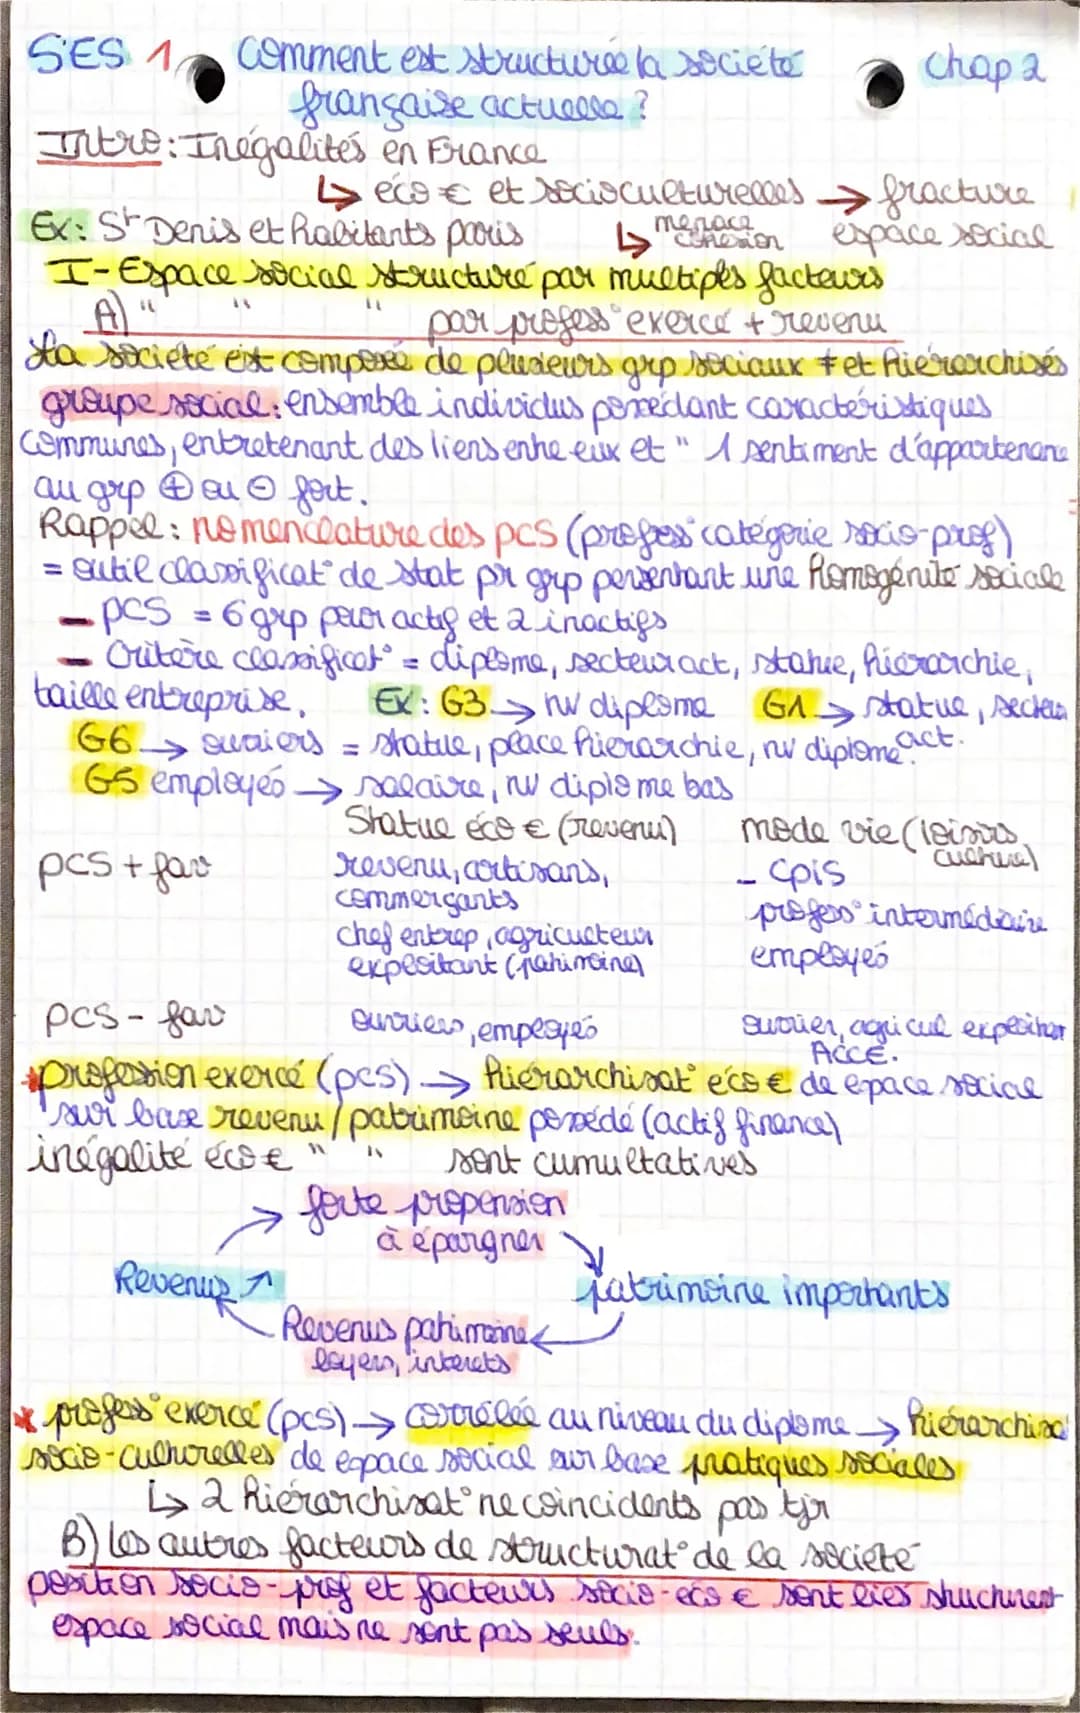 SES 1 Comment est structurée la société Chap 2
française actuelle ?
Intro : Inégalités en France
↳ éco € et socioculturelles → fracture
Ex : St Denis et habitants paris ↳ menace cohésion espace social
I - Espace social structuré par multiples facteurs
A) " " " par profess° exercé + revenu
La société est composée de plusieurs grp sociaux ≠ et hiérarchisés
groupe social : ensemble individus possédant caractéristiques
communes, entretenant des liens entre eux et " 1 sentiment d'appartenance
au grp ⊕ ou ⊖ fort.
Rappel : nomenclature des pcs (profess° catégorie socio-prof)
= outil classificat° de stat pr grp présentant une homogénité sociale
- pcs = 6 grp pour actif et 2 inactifs
- Critère classificat° = diplome, secteur act, statue, hiérarchie,
taille entreprise. Ex : G3 → nv diplome G1 → statue, secteur act.
G6 → ouvriers = statue, place hierarchie, nv diplome
G5 employés → salaire, nv diplome bas
Statue éco € (revenu) mode vie (loisirs, culture)
pcs + fav revenu, artisans, - cpis
commerçants profess° intermédiaire
chef entrep, agriculteur employés
exploitant (patrimoine)
pcs - fav ouvriers, employés ouvrier, agricul exploitant
ACCE.
*profession exercé (pcs) → hiérarchisat° éco € de espace social
sur base revenu / patrimoine possédé (actif finance)
inégalité éco € " " sont cumultatives
forte propension
à épargner
Revenus ↗ patrimoine importants
Revenus patrimoine
loyers, interets
* profess° exercé (pcs) → corrélée au niveau du diplome → hiérarchisa°
socio-culturelles de espace social sur base pratiques sociales
↳ 2 hiérarchisat° ne coincidents pas tjr
B) Les autres facteurs de structurat° de la société
position socio-prof et facteurs socio-éco € sont liés structurent
espace social mais ne sont pas seuls.